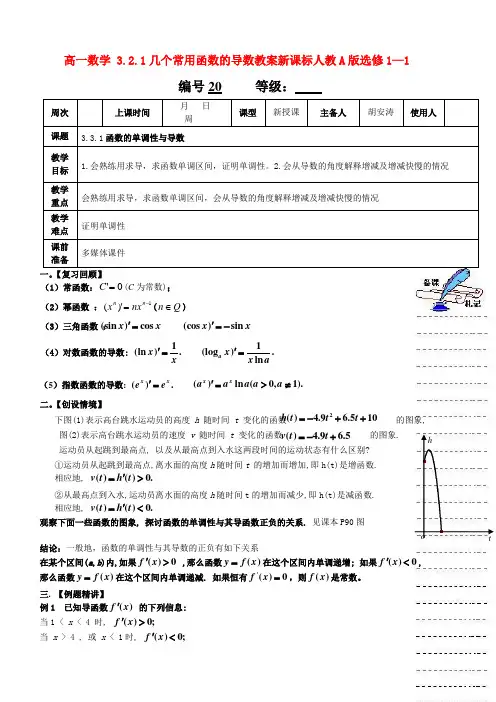 高一数学 3.2.1几个常用函数的导数教案新课标人教A版选修1—1
编号20 等级：
周次 上课时间 月 日 周 课型 新授课 主备人 胡安涛 使用人
课题 3.3.1函数的单调性与导数
教学目标 1.会熟练用求导，求函数单调区间，证明单调性。2.会从导数的角度解释增减及增减快慢的情况
教学重点 会熟练用求导，求函数单调区间，会从导数的角度解释增减及增减快慢的情况
教学难点 证明单调性
课前准备 多媒体课件
备课札记
一。【复习回顾】
（1）常函数：C'=0（C为常数）；
（2）幂函数 ：(x^n)'=nx^{n-1}（n∈Q）
（3）三角函数（(sin x)′=cos x (cos x)′=−sin x
（4）对数函数的导数：(ln x)′=1/x. (log_a x)′=1/(x ln a).
（5）指数函数的导数：(e^x)′=e^x. (a^x)′=a^x ln a(a>0,a≠1).
二。【创设情境】
下图(1)表示高台跳水运动员的高度 h 随时间 t 变化的函数h(t)=−4.9t²+6.5t+10 的图象,
图(2)表示高台跳水运动员的速度 v 随时间 t 变化的函数v(t)=−9.8t+6.5 的图象.
运动员从起跳到最高点, 以及从最高点到入水这两段时间的运动状态有什么区别?
①运动员从起跳到最高点,离水面的高度h随时间t 的增加而增加,即h(t)是增函数.
相应地, v(t)=h′(t)>0.
②从最高点到入水,运动员离水面的高度h随时间t的增加而减少,即h(t)是减函数.
相应地, v(t)=h′(t)<0.
h
o
t
观察下面一些函数的图象, 探讨函数的单调性与其导函数正负的关系. 见课本P90图
结论：一般地，函数的单调性与其导数的正负有如下关系
在某个区间(a,b)内,如果f′(x)>0 ,那么函数y=f(x)在这个区间内单调递增; 如果f′(x)<0,
那么函数y=f(x)在这个区间内单调递减. 如果恒有f′(x)=0，则f(x)是常数。
三.【例题精讲】
例1 已知导函数f′(x) 的下列信息:
当1 < x < 4 时, f′(x)>0;
当 x > 4 , 或 x < 1时, f′(x)<0;